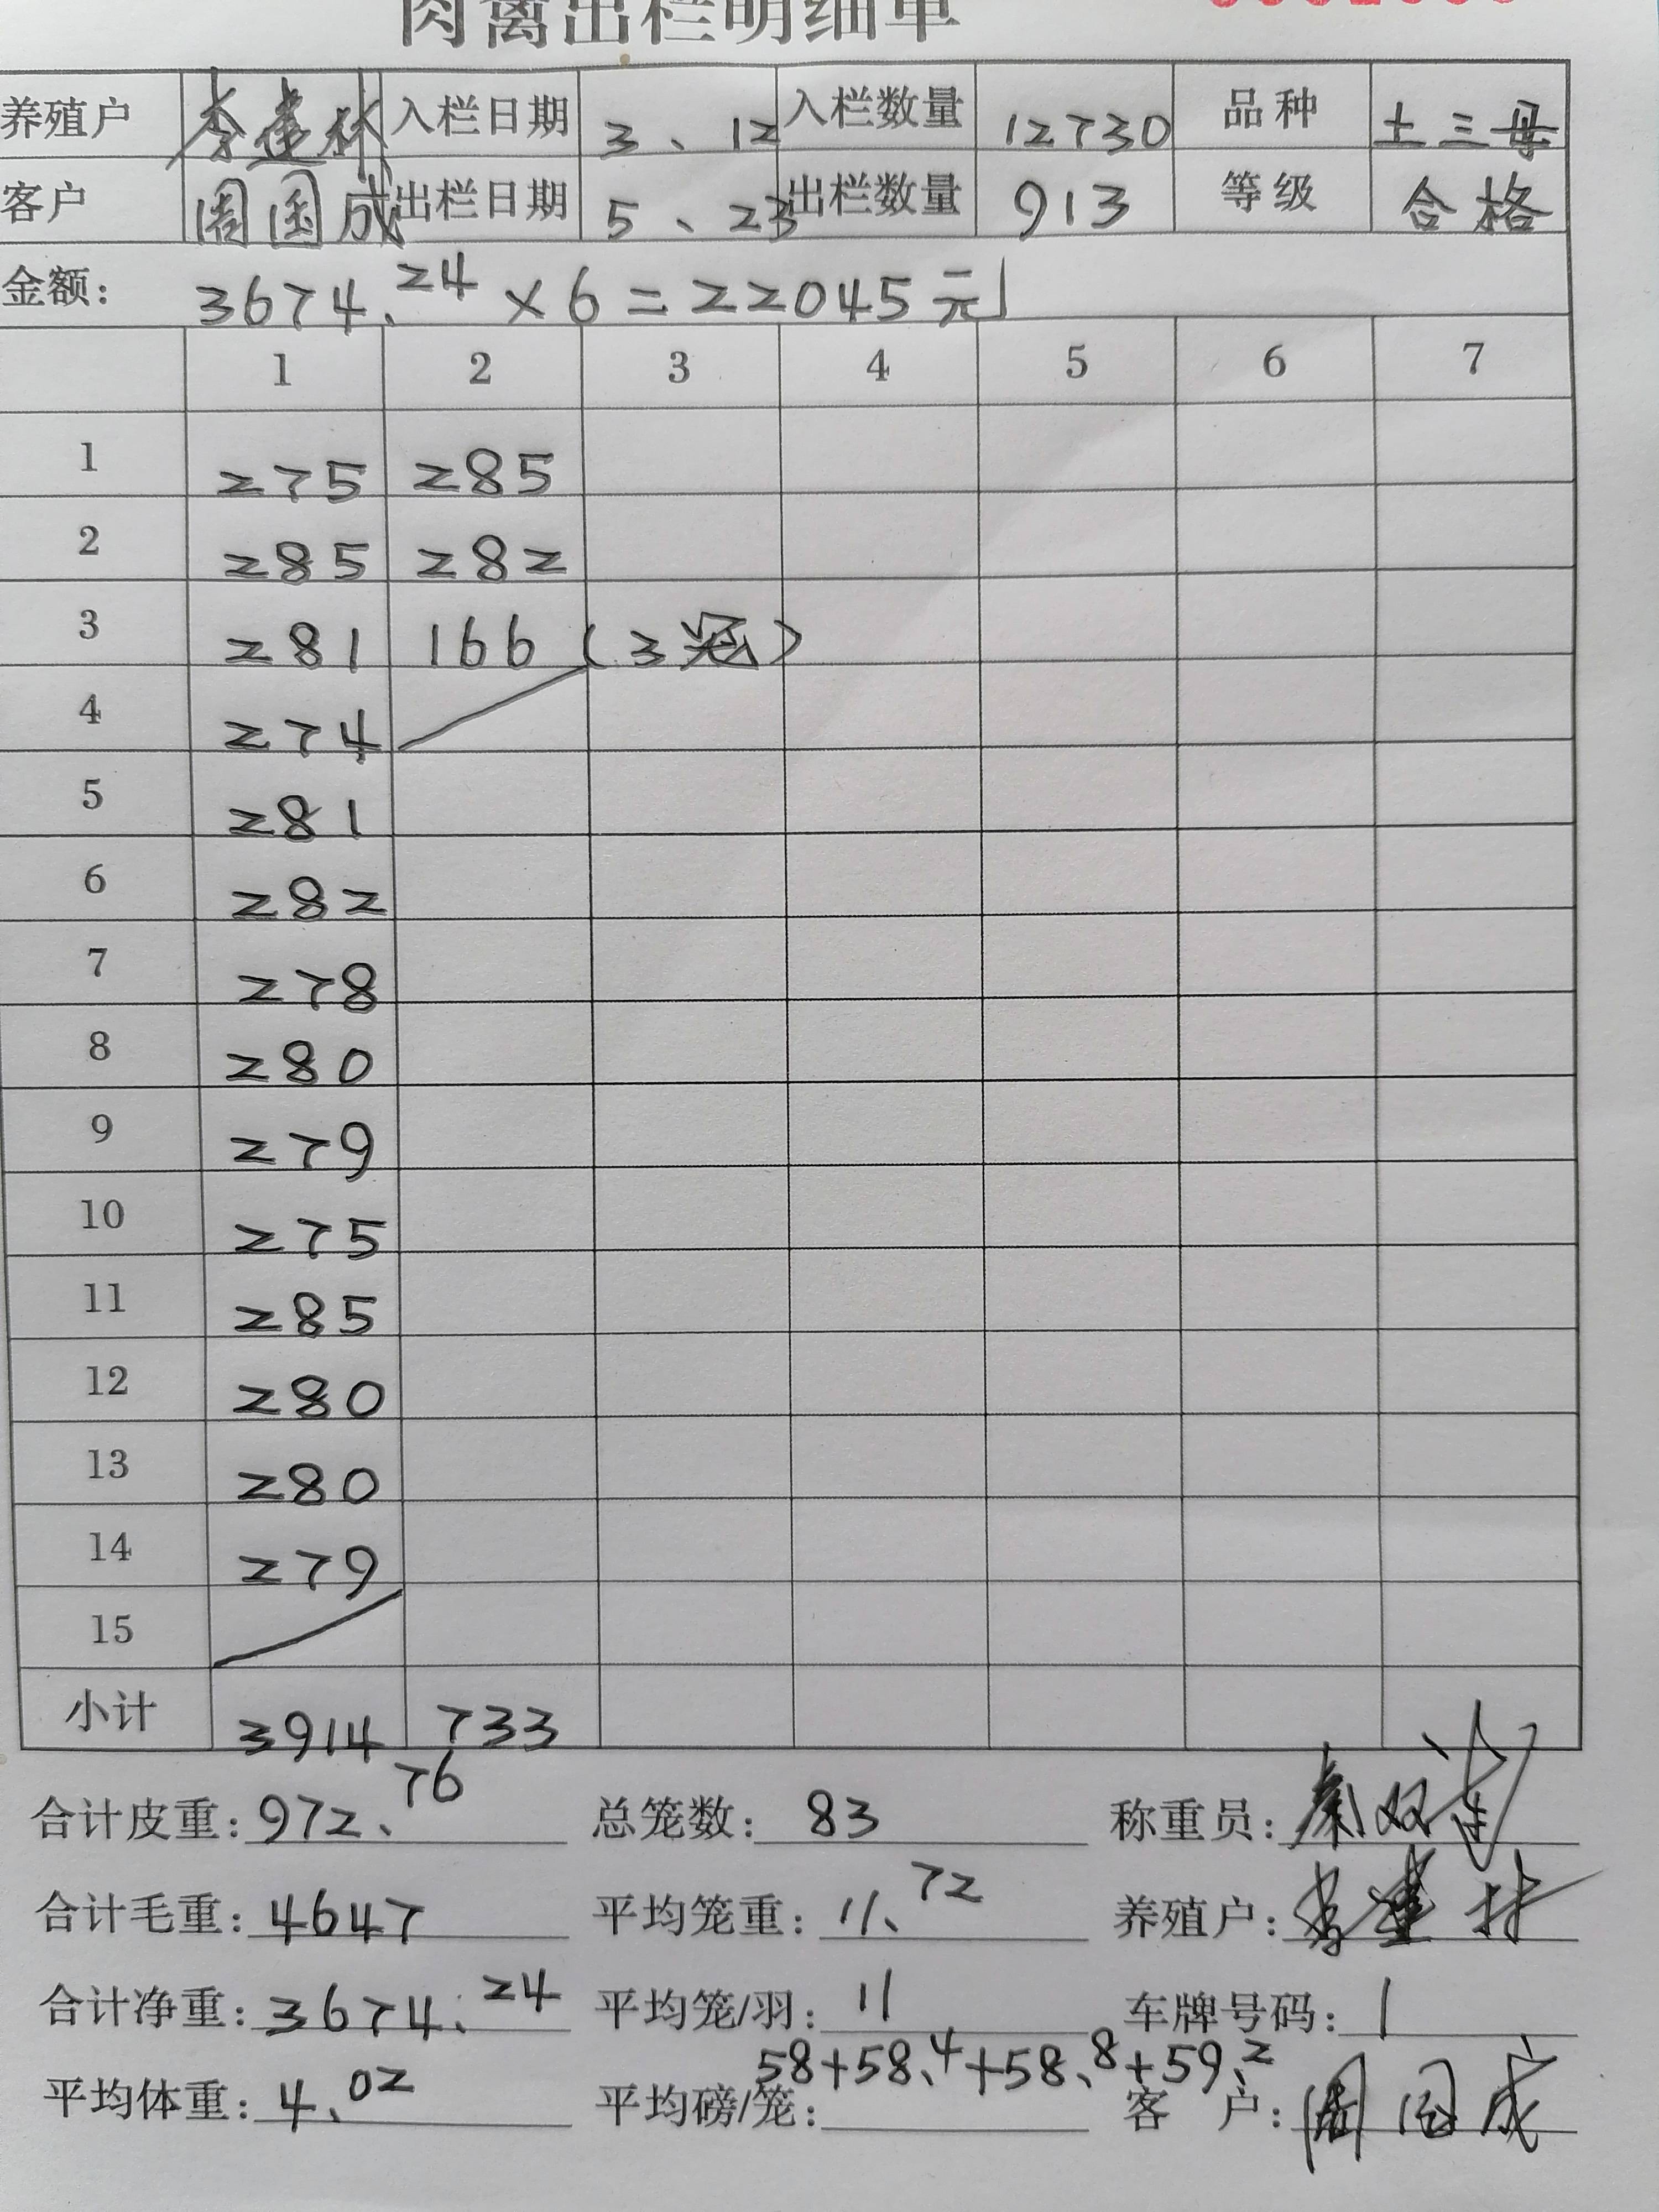 肉禽出栏明细单
养殖户 李建林 入栏日期 3、12 入栏数量 12730 品种 土三母
客户 周国成 出栏日期 5、23 出栏数量 913 等级 合格
金额: 3674.24×6=22045元
1 2 3 4 5 6 7
1 275 285
2 285 282
3 281 166 (3冠)
4 274
5 281
6 282
7 278
8 280
9 279
10 275
11 285
12 280
13 280
14 279
15
小计 3914 733
合计皮重: 972、76 总笼数: 83 称重员: 秦双
合计毛重: 4647 平均笼重: 11、72 养殖户: 李建林
合计净重: 3674.24 平均笼/羽: 11 车牌号码: 1
58+58、4+58、8+59、2
平均体重: 4、02 平均磅/笼: 客 户: 周国成